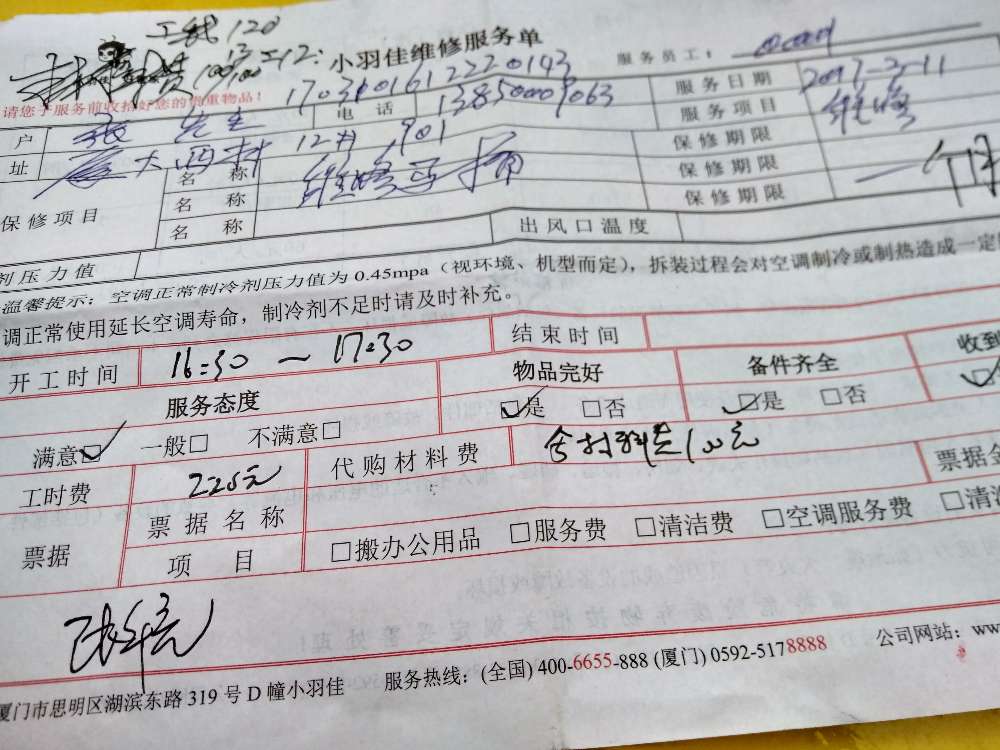 工钱120
小羽佳维修服务单
服务员工：
请您于服务前收拾好您的贵重物品！
170301612220143
服务日期 2017-2-11
户 张先生 电话 13850009063
服务项目 维修
址 厦大西村 12 901
保修期限
保修项目 名称 维修马桶
保修期限 一个月
名称
保修期限
名称
剂压力值 出风口温度
温馨提示：空调正常制冷剂压力值为 0.45mpa（视环境、机型而定），拆装过程会对空调制冷或制热造成一定
调正常使用延长空调寿命，制冷剂不足时请及时补充。
开工时间 16:30 ~ 17:30 结束时间
服务态度 物品完好 备件齐全 收到
满意☑ 一般□ 不满意□ ☑是 □否 ☑是 □否
工时费 225元 代购材料费 含材料费100元
票据 票据名称 票据金
项目 □搬办公用品 □服务费 □清洁费 □空调服务费 □清
厦门市思明区湖滨东路 319 号 D 幢小羽佳 服务热线：(全国) 400-6655-888 (厦门) 0592-5178888 公司网站：ww